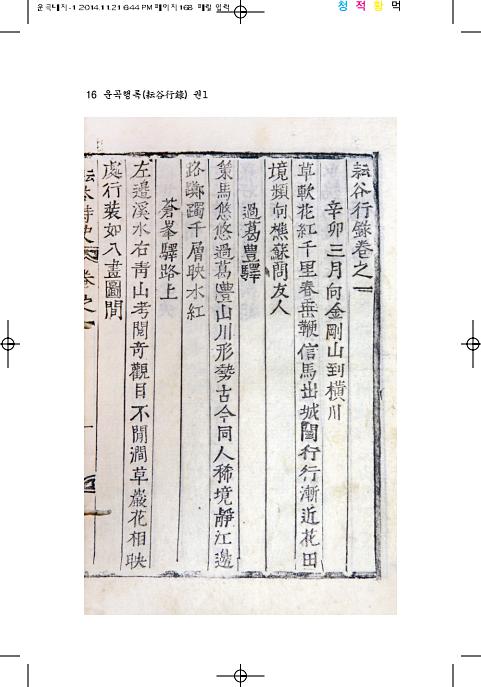 운곡내지-1 2014.11.21 6:44 PM 페이지168
청 적 황 먹
16 운곡행록(耘谷行錄) 권1
耘谷行錄卷之一
辛卯三月向金剛山到橫川
草軟花紅千里春垂鞭信馬出城闉行行漸近花田
境頻向樵蘇問友人
過葛豊驛
策馬悠悠過葛豊山川形勢古今同人稀境靜江邊
路躑躅千層映水紅
蒼峯驛路上
左邊溪水右靑山考閱奇觀目不閒澗草巖花相映
處行裝如入畫圖間
詩史 卷之一